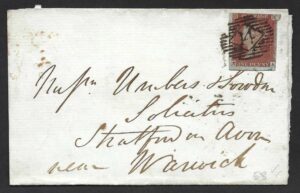 ONE PENNY
Messrs Umbers & 
Solicitors
Stratford on Avon
near Warwick